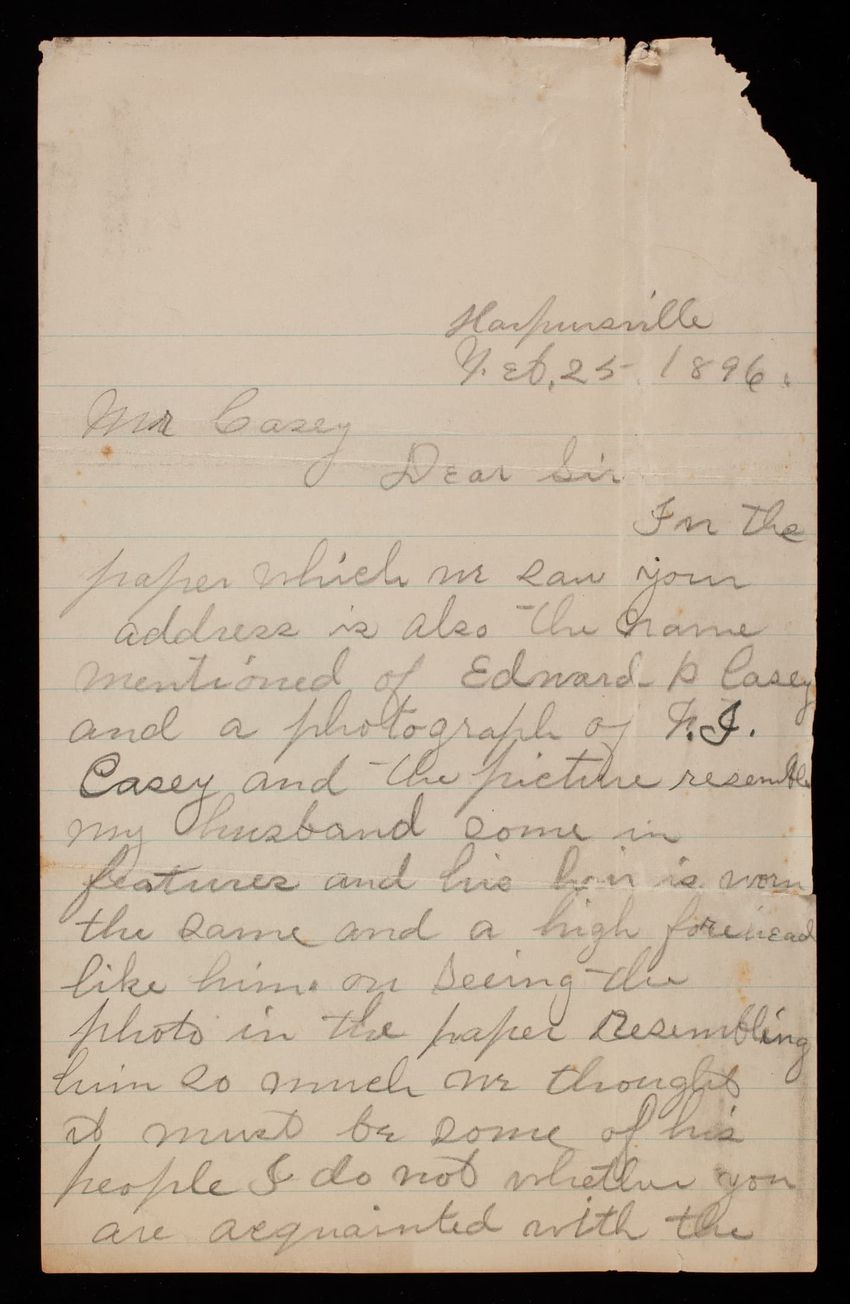 Harpursville
Feb, 25 1896.
Mr Casey
Dear Sir
In the
paper which we saw your
address is also the name
mentioned of Edward P Casey
and a photograph of F. J.
Casey and the picture resemble
my husband some in
features and his hair is worn
the same and a high forehead
like him. on seeing the
photo in the paper Resembling
him so much we thought
it must be some of his
people I do not whether you
are acquainted with the